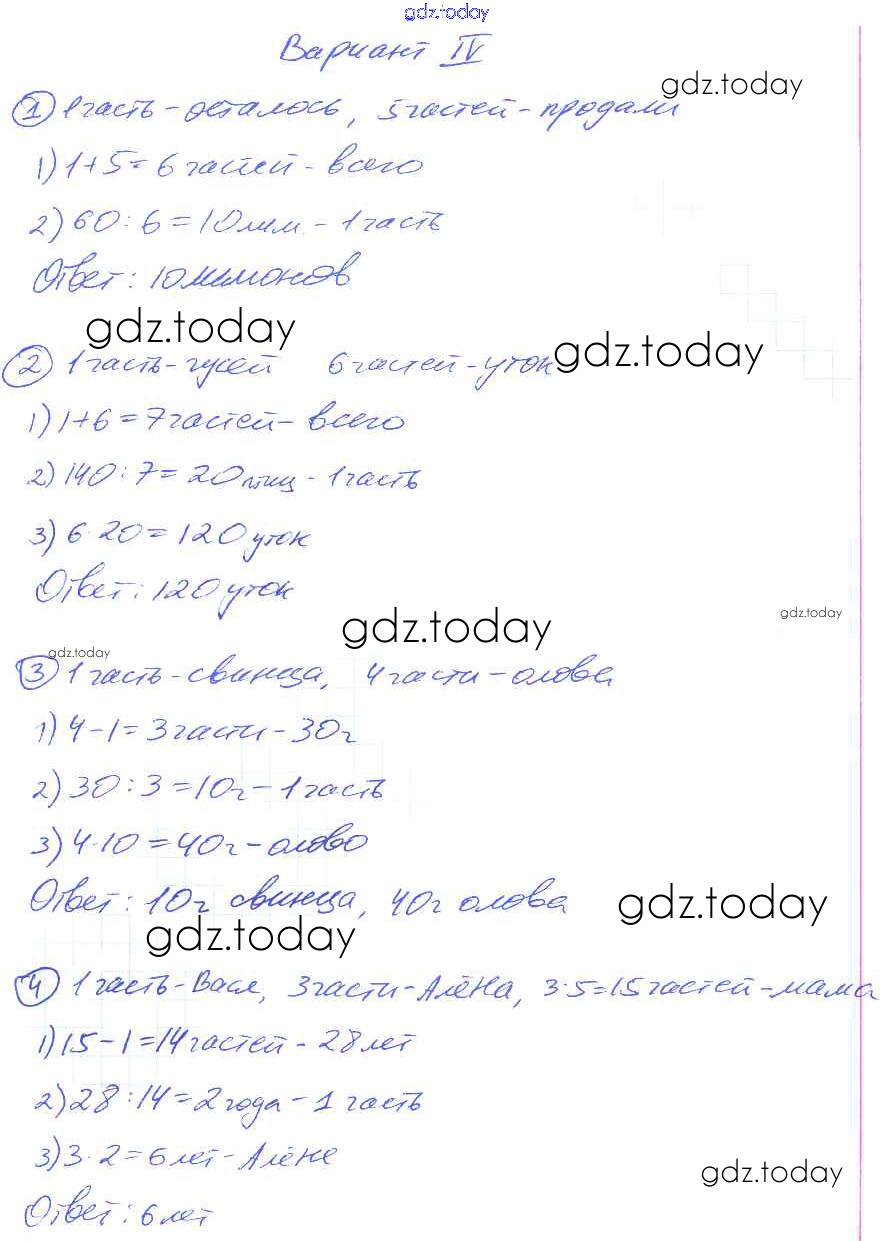 gdz.today
Вариант IV
gdz.today
① 1часть - осталось, 5частей - продали
1) 1+5=6частей - всего
2) 60:6=10лим. - 1часть
Ответ: 10лимонов
gdz.today
gdz.today
② 1часть-гусей 6частей-уток
1) 1+6=7частей-всего
2) 140:7=20птиц - 1часть
3) 6·20=120уток
Ответ: 120уток
gdz.today
gdz.today
gdz.today
③ 1часть-свинца, 4части-олова
1) 4-1=3части-30г
2) 30:3=10г-1часть
3) 4·10=40г-олово
Ответ: 10г свинца, 40г олова
gdz.today
gdz.today
④ 1часть-Вася, 3части-Алёна, 3·5=15частей-мама
1) 15-1=14частей - 28лет
2) 28:14=2года-1часть
3) 3·2=6лет-Алёне
gdz.today
Ответ: 6лет